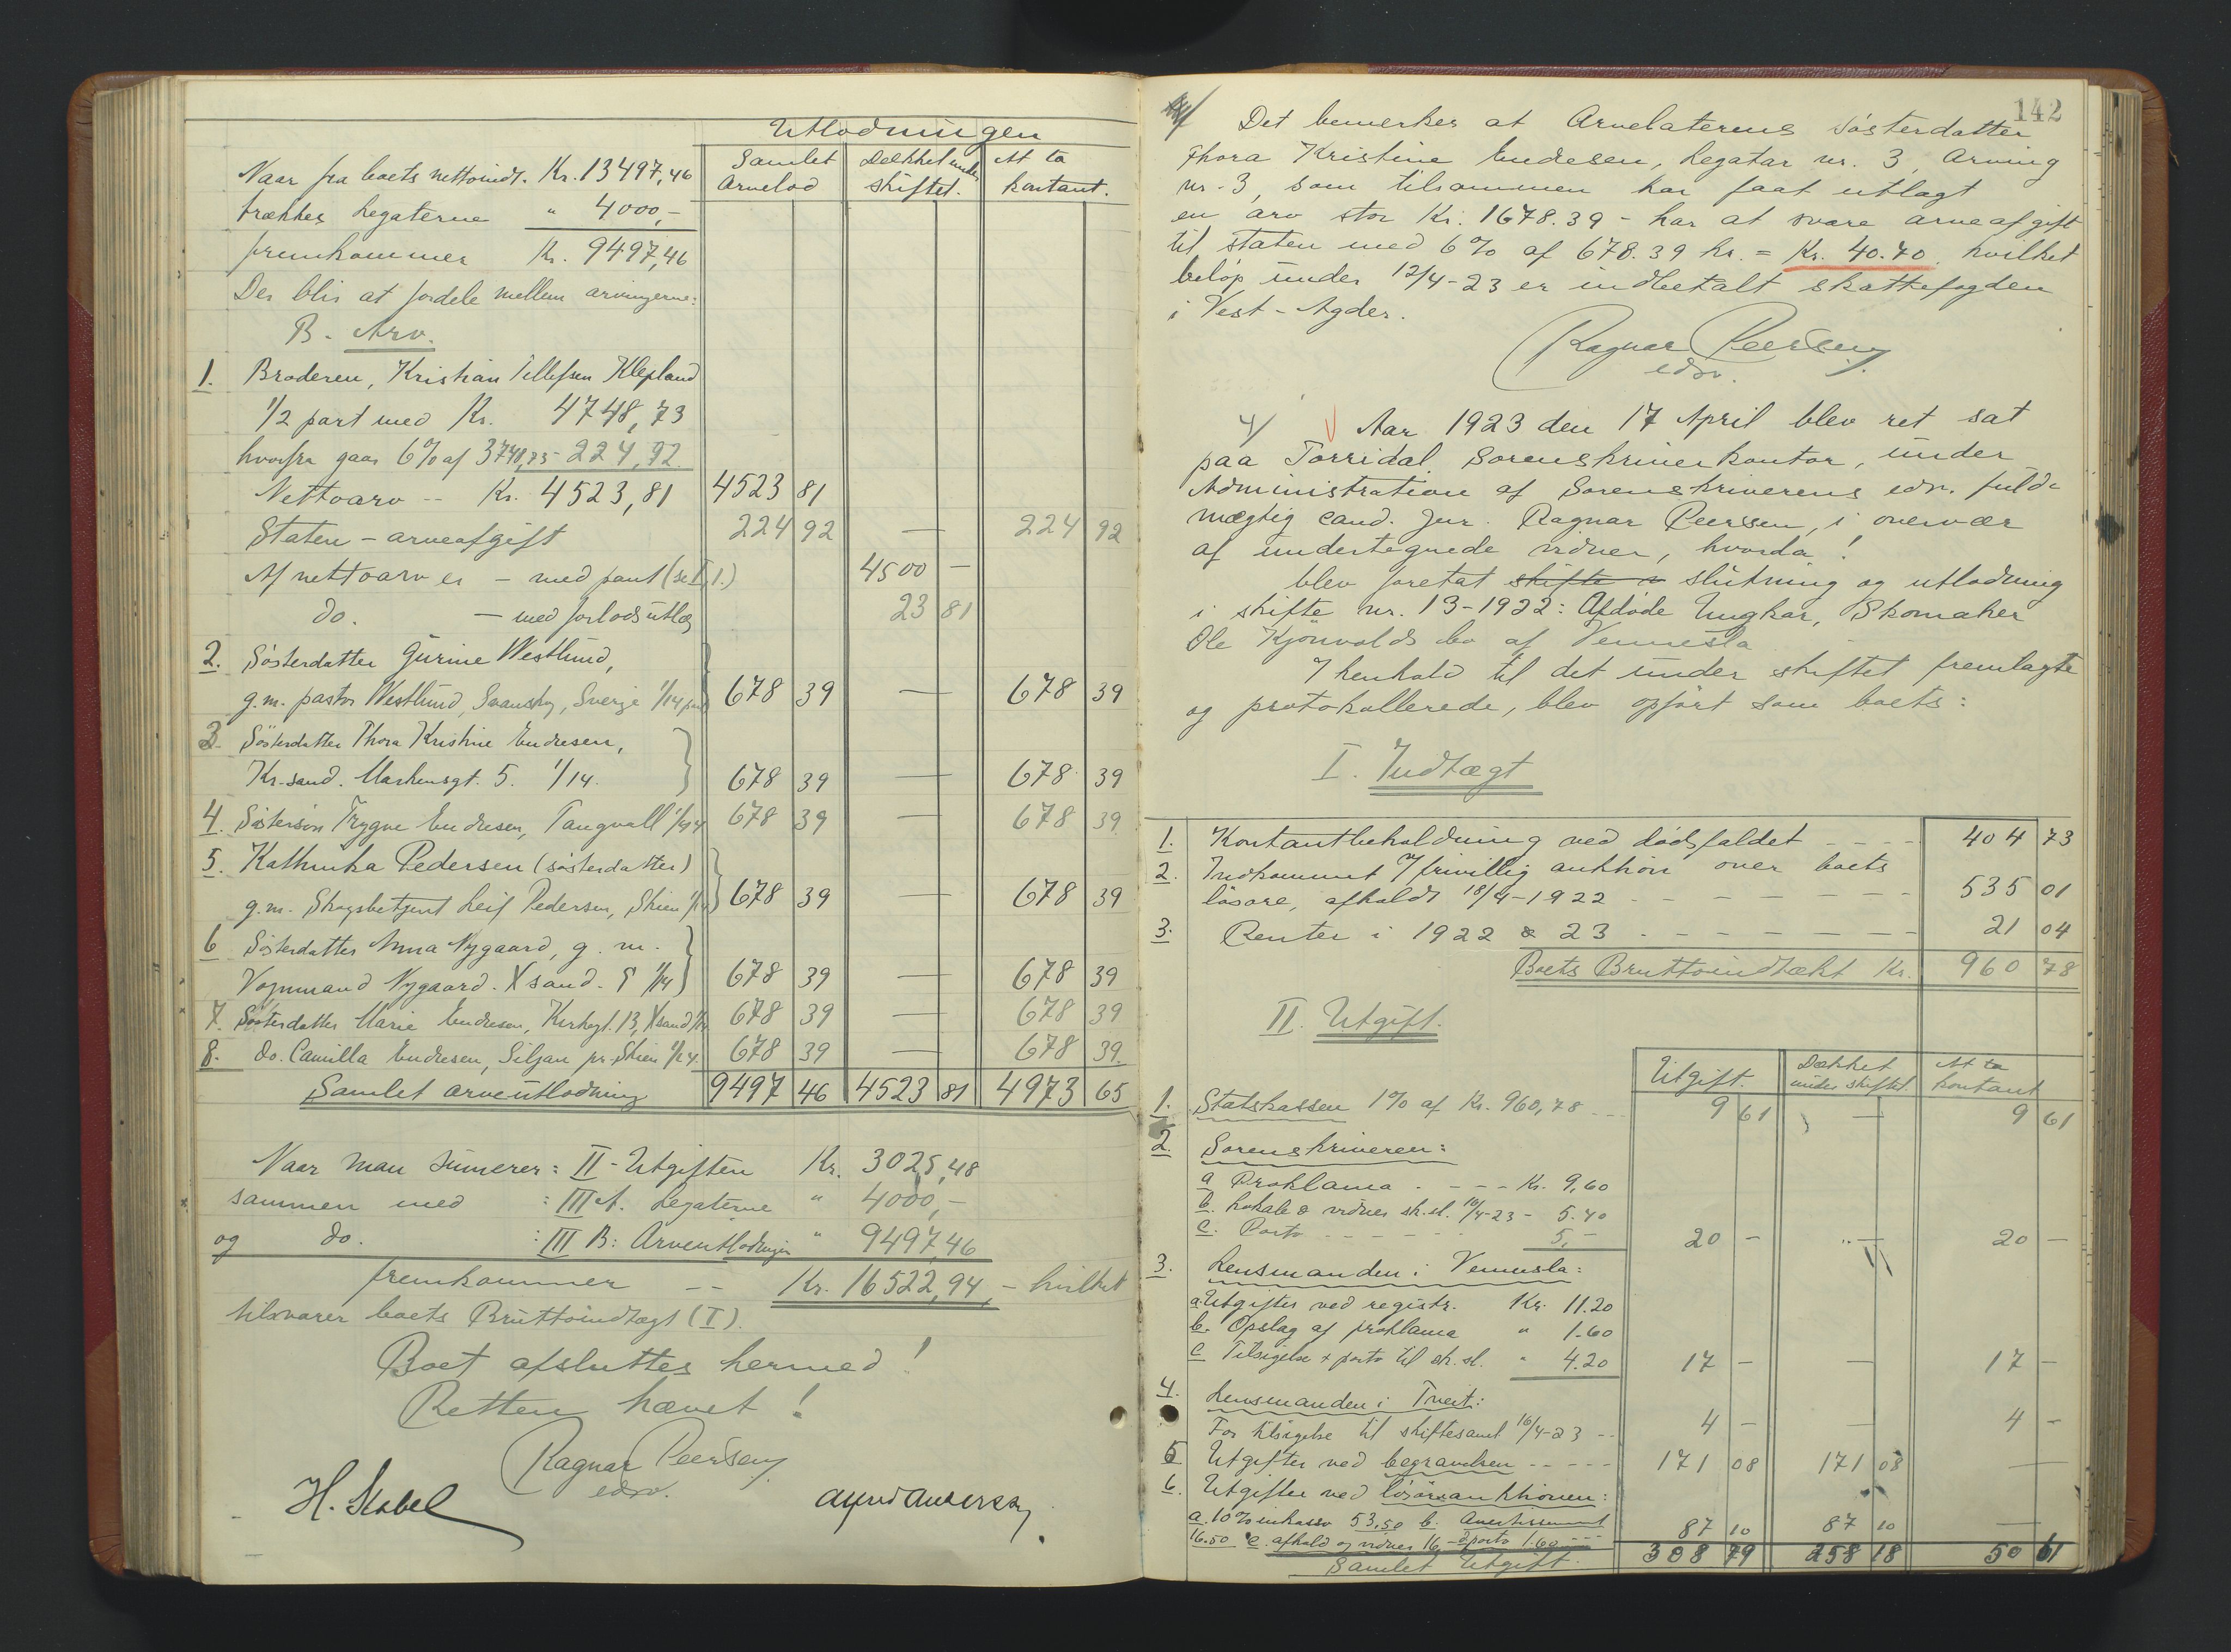 Utlodningen
Samlet Arvelod | Dækket under skiftet. | At ta kontant.
Naar fra boets nettoindt. Kr. 13497,46
trækkes Legaterne " 4000,-
fremkommer Kr. 9497,46
Der blir at fordele mellem arvingerne:
B. Arv.
1. Broderen, Kristian Tellefsen Klepland
1/2 part med Kr. 4748,73
hvorfra gaar 6% af 3748,73 - 224,92.
Nettoarv -- Kr. 4523,81 | 4523 81
Staten - arveafgift | 224 92 | — | 224 92
Af nettoarv er - med pant (se I, 1.) | 4500 -
do. — med forlodsutlæg | 23 81
2. Søsterdatter Gurine Westlund,
g.m. pastor Westlund, Svansky, Sverige 1/14 part | 678 39 | — | 678 39
3. Søsterdatter Thora Kristine Endresen,
Kr.sand. Markensgt. 5. 1/14. | 678 39 | — | 678 39
4. Søstersøn Trygve Endresen, Tangvall 1/14 | 678 39 | — | 678 39
5. Kathinka Pedersen (søsterdatter)
g.m. Skogsbetjent Leif Pedersen, Skien 1/14 | 678 39 | — | 678 39
6 Søsterdatter Anna Nygaard, g. m.
Vognmand Nygaard. Xsand. S 1/14 | 678 39 | — | 678 39
7. Søsterdatter Marie Endresen, Kirkegt. 13, Xsand 1/14 | 678 39 | — | 678 39
8. do. Camilla Endresen, Siljan pr. Skien 1/14. | 678 39 | — | 678 39.
Samlet arveutlodning | 9497 46 | 4523 81 | 4973 65
Naar man sumerer: II - Utgiften Kr. 3025,48
sammen med : III A. Legaterne " 4000,-
og do. : III B: Arveutlodningen " 9497,46
fremkommer -- Kr. 16522,94, - hvilket
tilsvarer boets Bruttoindtægt (I).
Boet afsluttes hermed!
Retten hævet!
Ragnar Peersen
edsv.
H. Stabel
Alfred Andersen
142
Det bemerkes at Arvelaterens søsterdatter
Thora Kristine Endresen, Legatar nr. 3, Arving
nr. 3, som tilsammen har faat utlagt
en arv stor Kr. 1678.39 - har at svare arveafgift
til staten med 6% af 678.39 kr. = Kr. 40.70. hvilket
beløp under 12/4-23 er indbetalt skattefogden
i Vest-Agder.
Ragnar Peersen
edsv.
4/ Aar 1923 den 17 April blev ret sat
paa Torridal Sorenskriverkontor, under
Administration af Sorenskriverens edsv. fuld-
mægtig cand. jur. Ragnar Peersen, i overvær
af undertegnede vidner, hvorda!
blev foretat skifte s slutning og utlodning
i skifte nr. 13-1922: Afdøde Ungkar, Skomaker
Ole Kjønvolds bo af Vennesla
I henhold til det under skiftet fremlagte
og protokollerede, blev opført som boets:
I. Indtægt
1. Kontantbeholdning ved dødsfaldet - - - - 404 73
2. Indkommet v/ frivillig auktion over boets
løsøre, afholdt 18/4-1922 - - - - - - 535 01
3. Renter i 1922 & 23 - - - - - - - 21 04
Boets Bruttoindtækt Kr. 960 78
II. Utgift.
Utgift. | Dækket under skiftet. | At ta kontant
1. Statskassen 1% af Kr. 960,78 -- | 9 61 | — | 9 61
2. Sorenskriveren:
a Proklama - - - - Kr. 9,60
b. Lokale & vidner sk.sl. 16/4-23 - 5.40
c. Porto - - - - - 5,- | 20 - | — | 20 -
3. Lensmanden i Vennesla:
a. Utgifter ved registr. Kr. 11.20
b. Opslag af proklama " 1.60
c Tilsigelse & porto til sk.sl. " 4.20 | 17 - | — | 17 -
4. Lensmanden i Tveit:
For tilsigelse til skiftesaml 16/4-23 -- | 4 - | — | 4 -
5 Utgifter ved begravelsen - - - - - | 171 08 | 171 08 | —
6. Utgifter ved løsøreauktionen:
a. 10% inkasso 53,50 b. Avertissement
16.50 c. afhold og vidner 16,- d porto 1.60 --- | 87 10 | 87 10 | —
Samlet Utgift. | 308 79 | 258 18 | 50 61